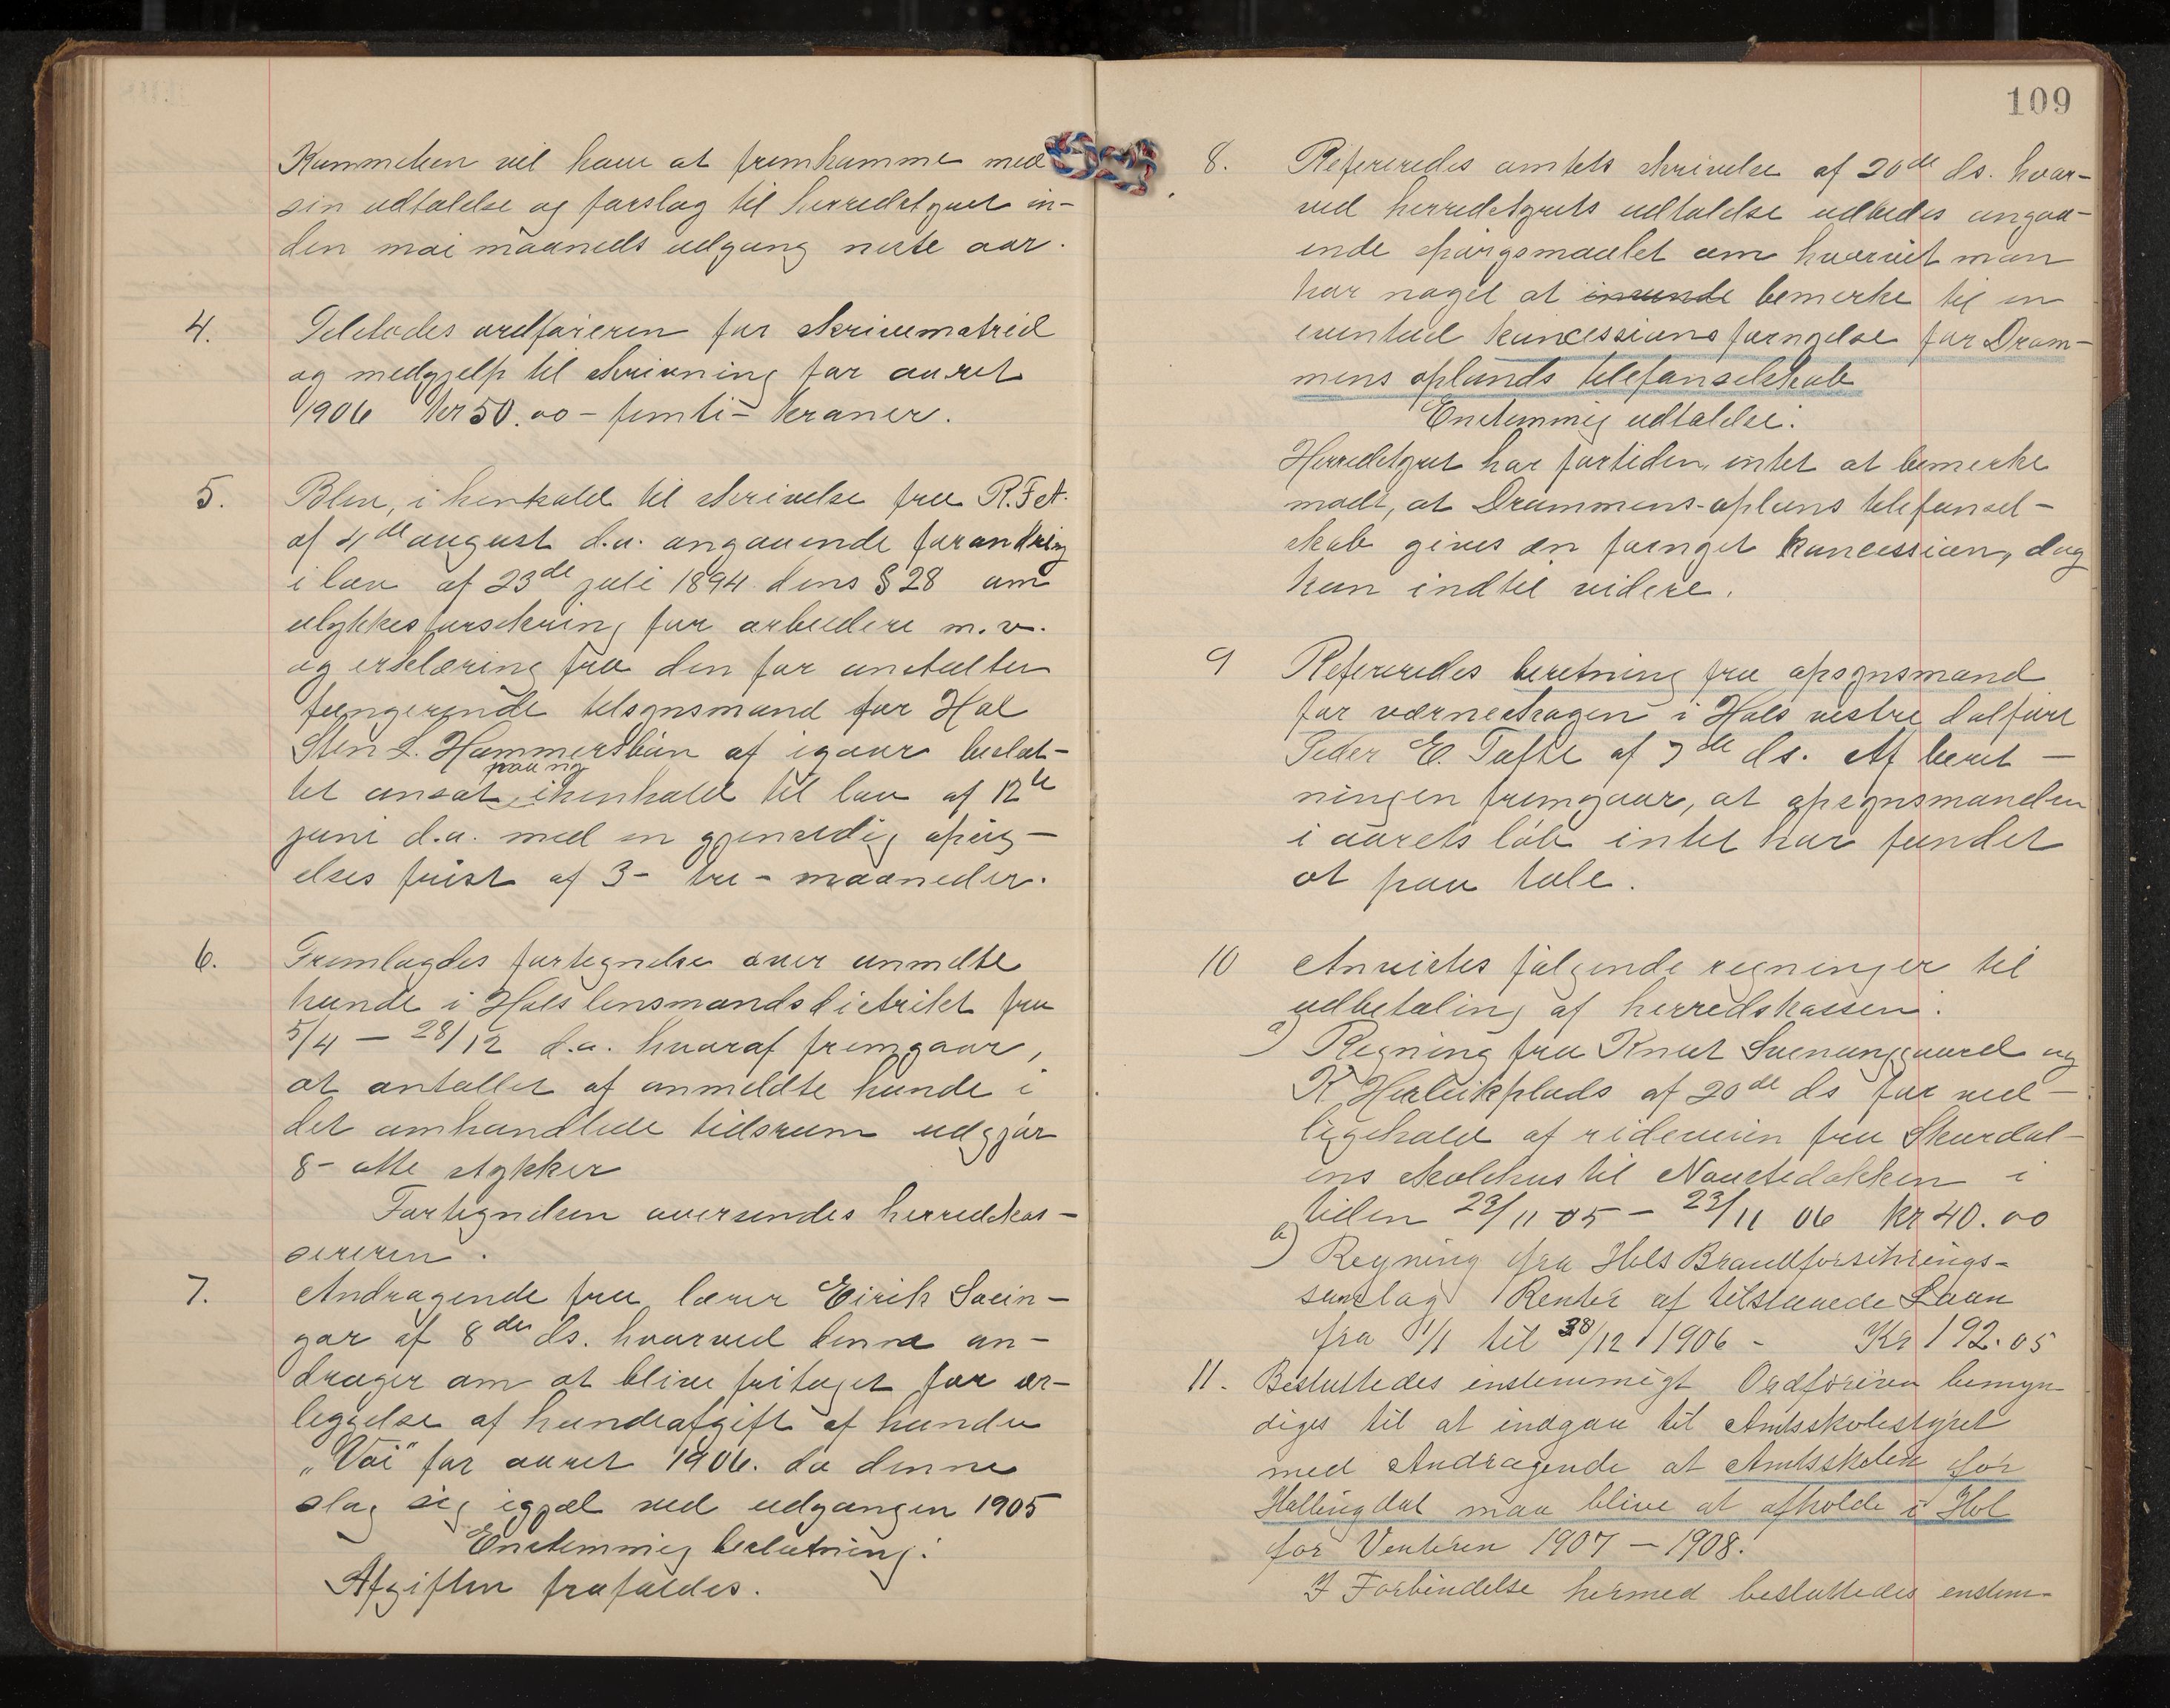 Kommiteen vil have at fremkomme med
sin udtalelse og forslag til herredstyret in-
den mai maaneds udgang neste aar.
4. Tilstodes ordføreren for skrivematriel
og medhjelp til skrivning for aaret
1906 kr 50.00 - femti - kroner.
5. Blev, i henhold til skrivelse fra R.F.A.
af 4de august d.a. angaaende forandring
i lov af 23de juli 1894 dens § 28 om
ulykkesforsikring for arbeidere m.v.
og erklæring fra den for anstalten
fungerende tilsynsmand for Hol
Sten S. Hammersbøn af igaar beslut-
paa ny
tet ansat, i henhold til lov af 12te
juni d.a. med en gjensidig opsig-
elses frist af 3 - tre - maaneder.
6. Fremlagdes fortegnelse over anmeldte
hunde i Hols lensmandsdistrikt fra
5/4 - 28/12 d.a. hvoraf fremgaar,
at antallet af anmeldte hunde i
det omhandlede tidsrum udgjør
8 - otte stykker
Fortegnelsen oversendes herredskas-
sereren.
7. Andragende fra lærer Eirik Svein-
gar af 8de ds. hvorved denne an-
drager om at blive fritaget for er-
leggelse af hundeafgift af hunden
"Voi" for aaret 1906. da denne
slog sig ihjel ved udgangen 1905
Enstemmig beslutning:
Afgiften frafaldes.
109
8. Refereredes amtets skrivelse af 20de ds. hvor-
ved herredstyrets udtalelse udbedes angaa-
ende spørgsmaalet om hvorvit man
har noget at bemerke til en
eventuel koncessions fornyelse for Dram-
mens oplands telefonselskab
Enstemmig udtalelse:
Herredstyret har fortiden intet at bemerke
modt, at Drammens-oplans telefonsel-
skab gives en fornyet koncession, dog
kun indtil videre.
9 Refereredes beretning fra opsynsmand
for værneskogen i Hols vestre dalføre
Peder E. Tufte af 7de ds. Af beret-
ningen fremgaar, at opsynsmanden
i aarets løb intet har fundet
at paa tale.
10 Anvistes følgende regninger til
udbetaling af herredskassen:
a) Regning fra Knut Svenunggaard og
K. Herleikplads af 20de ds for ved-
ligehold af rideveien fra Skurdal-
ens skolehus til Naustedokken i
tiden 23/11 05 - 23/11 06 kr 40.00
b) Regning fra Hols Brandforsikrings-
samlag Renter af tilstaaede Laan
fra 1/1 til 30/12 1906 - Kr 192.05
11. Besluttedes enstemmigt Ordføreren bemyn-
diges til at indgaa til Amtsskolestyret
med Andragende at Amtsskolen for
Hallingdal maa blive at afholde i Hol
for Venteren 1907 - 1908.
I Forbindelse hermed besluttedes enstem-